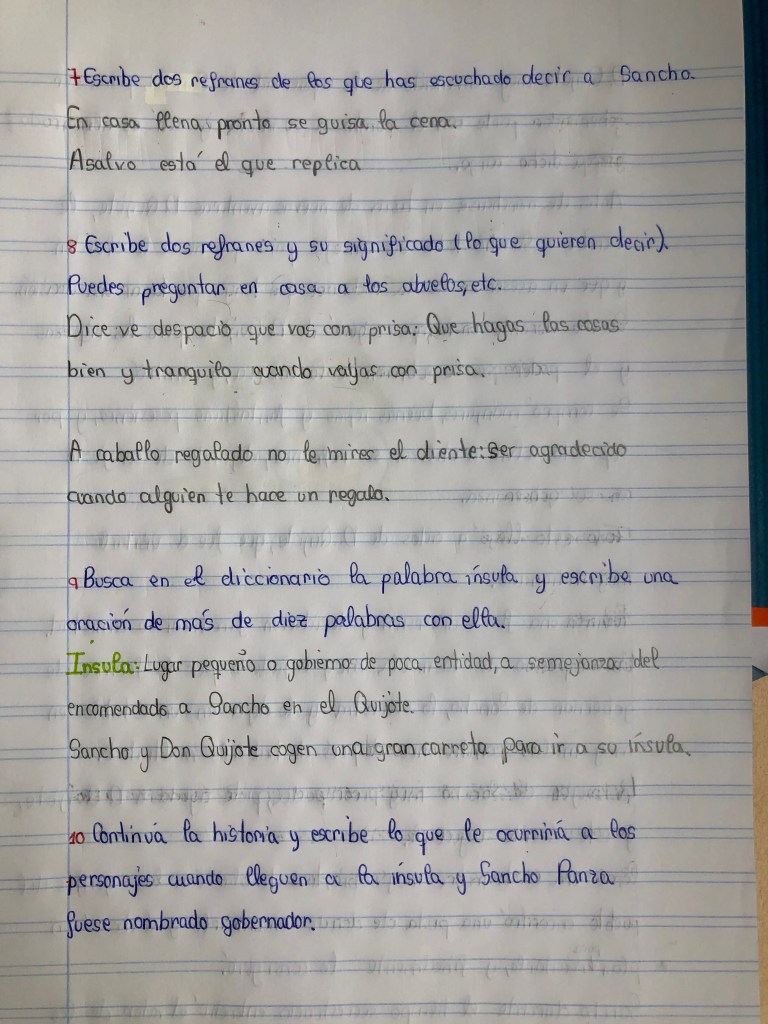 7 Escribe dos refranes de los que has escuchado decir a Sancho.
En casa llena pronto se guisa la cena.
Asalvo está el que replica
8 Escribe dos refranes y su significado (lo que quieren decir).
Puedes preguntar en casa a los abuelos, etc.
Dice ve despacio que vas con prisa: Que hagas las cosas
bien y tranquilo cuando vallas con prisa.
A caballo regalado no le mires el diente: Ser agradecido
cuando alguien te hace un regalo.
9 Busca en el diccionario la palabra ínsula y escribe una
oración de más de diez palabras con ella.
Ínsula: Lugar pequeño o gobierno de poca entidad, a semejanza del
encomendado a Sancho en el Quijote.
Sancho y Don Quijote cogen una gran carreta para ir a su ínsula.
10 Continúa la historia y escribe lo que le ocurriría a los
personajes cuando lleguen a la ínsula y Sancho Panza
fuese nombrado gobernador.